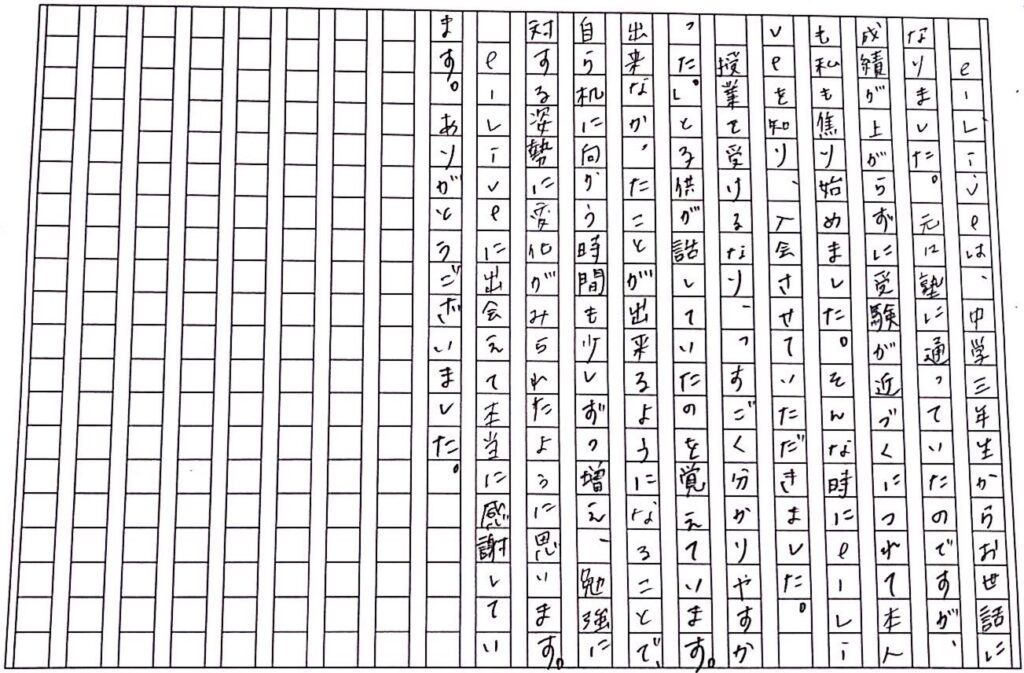 e-Liveは、中学三年生からお世話に
なりました。元に塾に通っていたのですが、
成績が上がらずに受験が近づくにつれて本人
も私も焦り始めました。そんな時にe-Li
veを知り、入会させていただきました。
授業て受けるなり、「すごく分かりやすか
った。」と子供が話していたのを覚えています。
出来なかったことが出来るようになることで、
自ら机に向かう時間も少しずつ増え、勉強に
対する姿勢に変化がみられたように思います。
e-Liveに出会えて本当に感謝してい
ます。ありがとうございました。